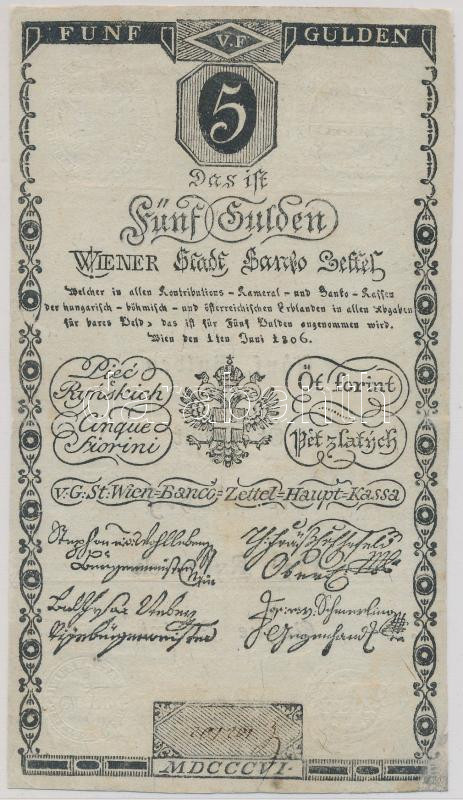 FÜNF
V.F
GULDEN
5
Das ist
Fünf Gulden
WIENER Stadt Banko Zettel
Welcher in allen Kontributions-Kameral-und Banko-Kassen
der hungarisch-böhmisch-und österreichischen Erblanden in allen Abgaben
für bares Geld, das ist für Fünf Gulden angenommen wird.
Wien den 1ten Juni 1806.
Pięć
Ryńskich
Cinque
Fiorini
Öt forint
Pět zlatých
v: G: St: Wien-Banco=Zettel=Haupt=Kassa
Stephan
Burgermeister
Ober
Vizebürgermeister
Gegenhand
MDCCCVI